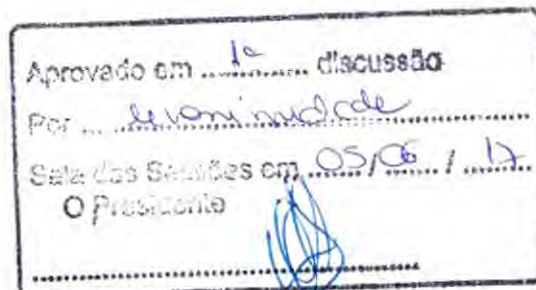 Aprovado em ....1ª.... discussão
Por ... unanimidade
Sala das Sessões em 05/06/17
O Presidente